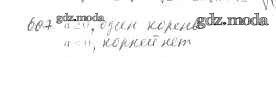 607. a ≥ 0, один корень
a < 0, корней нет
gdz.moda
gdz.moda